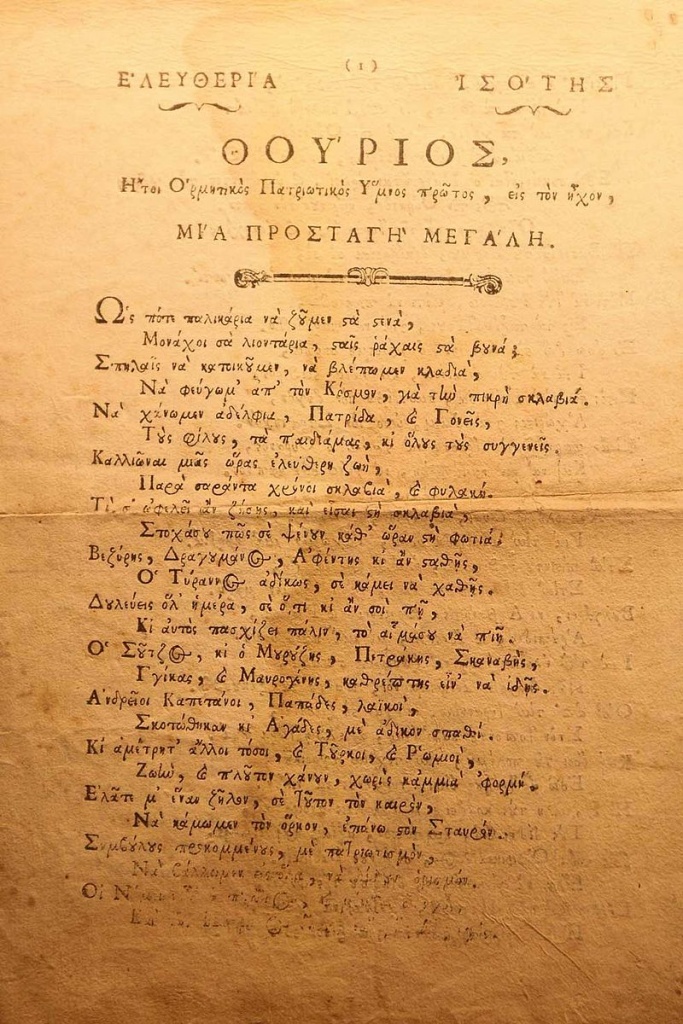 (1)
ΕʼΛΕΥΘΕΡΙʼΑ ἸΣΟʼΤΗΣ
ΘΟΥʼΡΙΟΣ,
Ἤτοι Ὁρμητικὸς Πατριωτικὸς Ὕμνος πρῶτος, εἰς τὸν ἦχον,
ΜΙʼΑ ΠΡΟΣΤΑΓΗʼ ΜΕΓΑʼΛΗ.
Ὡς πότε παλικάρια νὰ ζȣ͂μεν ϛὰ ϛενά,
Μονάχοι σὰ λιοντάρια, ϛαῖς ῥάχαις ϛὰ βȣνά;
Σπηλαῖς νὰ κατοικȣ͂μεν, νὰ βλέπωμεν κλαδιά,
Νὰ φεύγωμʼ ἀπʼ τὸν Κόσμον, γιὰ τὴν πικρὴ σκλαβιά.
Νὰ χάνωμεν ἀδέλφια, Πατρίδα, ϗ Γονεῖς,
Τȣ̀ς φίλȣς, τὰ παιδιάμας, κι ὅλȣς τȣ̀ς συγγενεῖς.
Καλλιῶναι μιᾶς ὥρας ἐλεύθερη ζωή,
Παρὰ σαράντα χρόνοι σκλαβιὰ, ϗ φυλακή.
Τί σʼ ὠφελεῖ ἂν ζήσῃς, καὶ εἶσαι ϛὴ σκλαβιά,
Στοχάσȣ πῶς σὲ ψένȣν καθʼ ὥραν ϛὴ φωτιά;
Βεζύρης, Δραγȣμάνος, Ἀφέντης κι ἂν ϛαθῇς,
Ὁ Τύραννος ἀδίκως, σὲ κάμει νὰ χαθῇς.
Δȣλεύεις ὅλʼ ἡμέρα, σὲ ὅ,τι κι ἄν σοι πῇ,
Κι αὐτὸς πασχίζει πάλιν, τὸ αἷμάσȣ νὰ πιῇ.
Ὁ Σȣ͂τζος, κι ὁ Μȣρȣ́ζης, Πετράκης, Σκαναβῆς,
Γγίκας, ϗ Μαυρογένης, καθρέπτης εἶνʼ νὰ ἰδῇς.
Ἀνδρεῖοι Καπετάνοι, Παπάδες, λαϊκοί,
Σκοτώθηκαν κι Ἀγάδες, μὲ ἄδικον σπαθί.
Κι ἀμέτρητʼ ἄλλοι τόσοι, ϗ Τȣ͂ρκοι, ϗ Ῥωμιοί,
Ζωὴν, ϗ πλȣ͂τον χάνȣν, χωρὶς κἀμμιὰ ʼφορμή.
Ἐλᾶτε μʼ ἕναν ζῆλον, σὲ τȣ͂τον τὸν καιρόν,
Νὰ κάμωμεν τὸν ὅρκον, ἐπάνω ϛὸν Σταυρόν.
Συμβȣ́λȣς προκομμένȣς, μὲ πατριωτισμόν,
Νὰ βάλλωμεν εἰς ὅλα, νὰ δίδȣν ὁρισμόν.
Οἱ